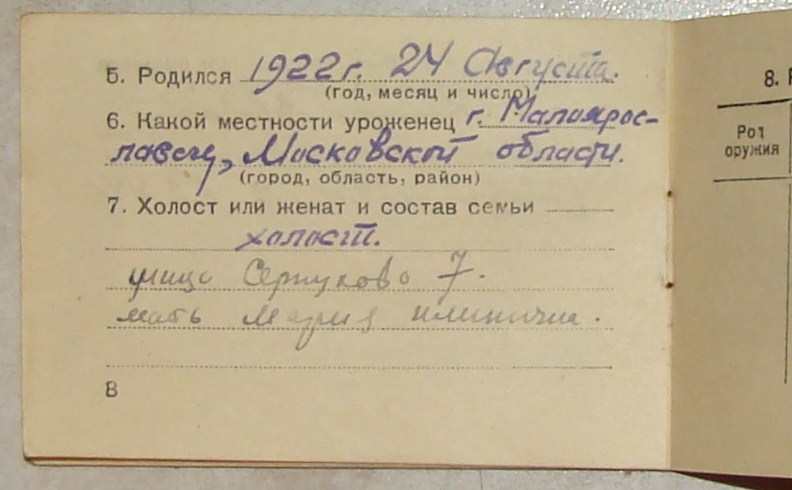 5. Родился 1922 г. 24 Августа.
(год, месяц и число)
6. Какой местности уроженец г. Малоярос-
лавец, Московской области.
(город, область, район)
7. Холост или женат и состав семьи
холост.
улица Серпухово 7.
мать Мария илинична.
8
8.
Род
оружия